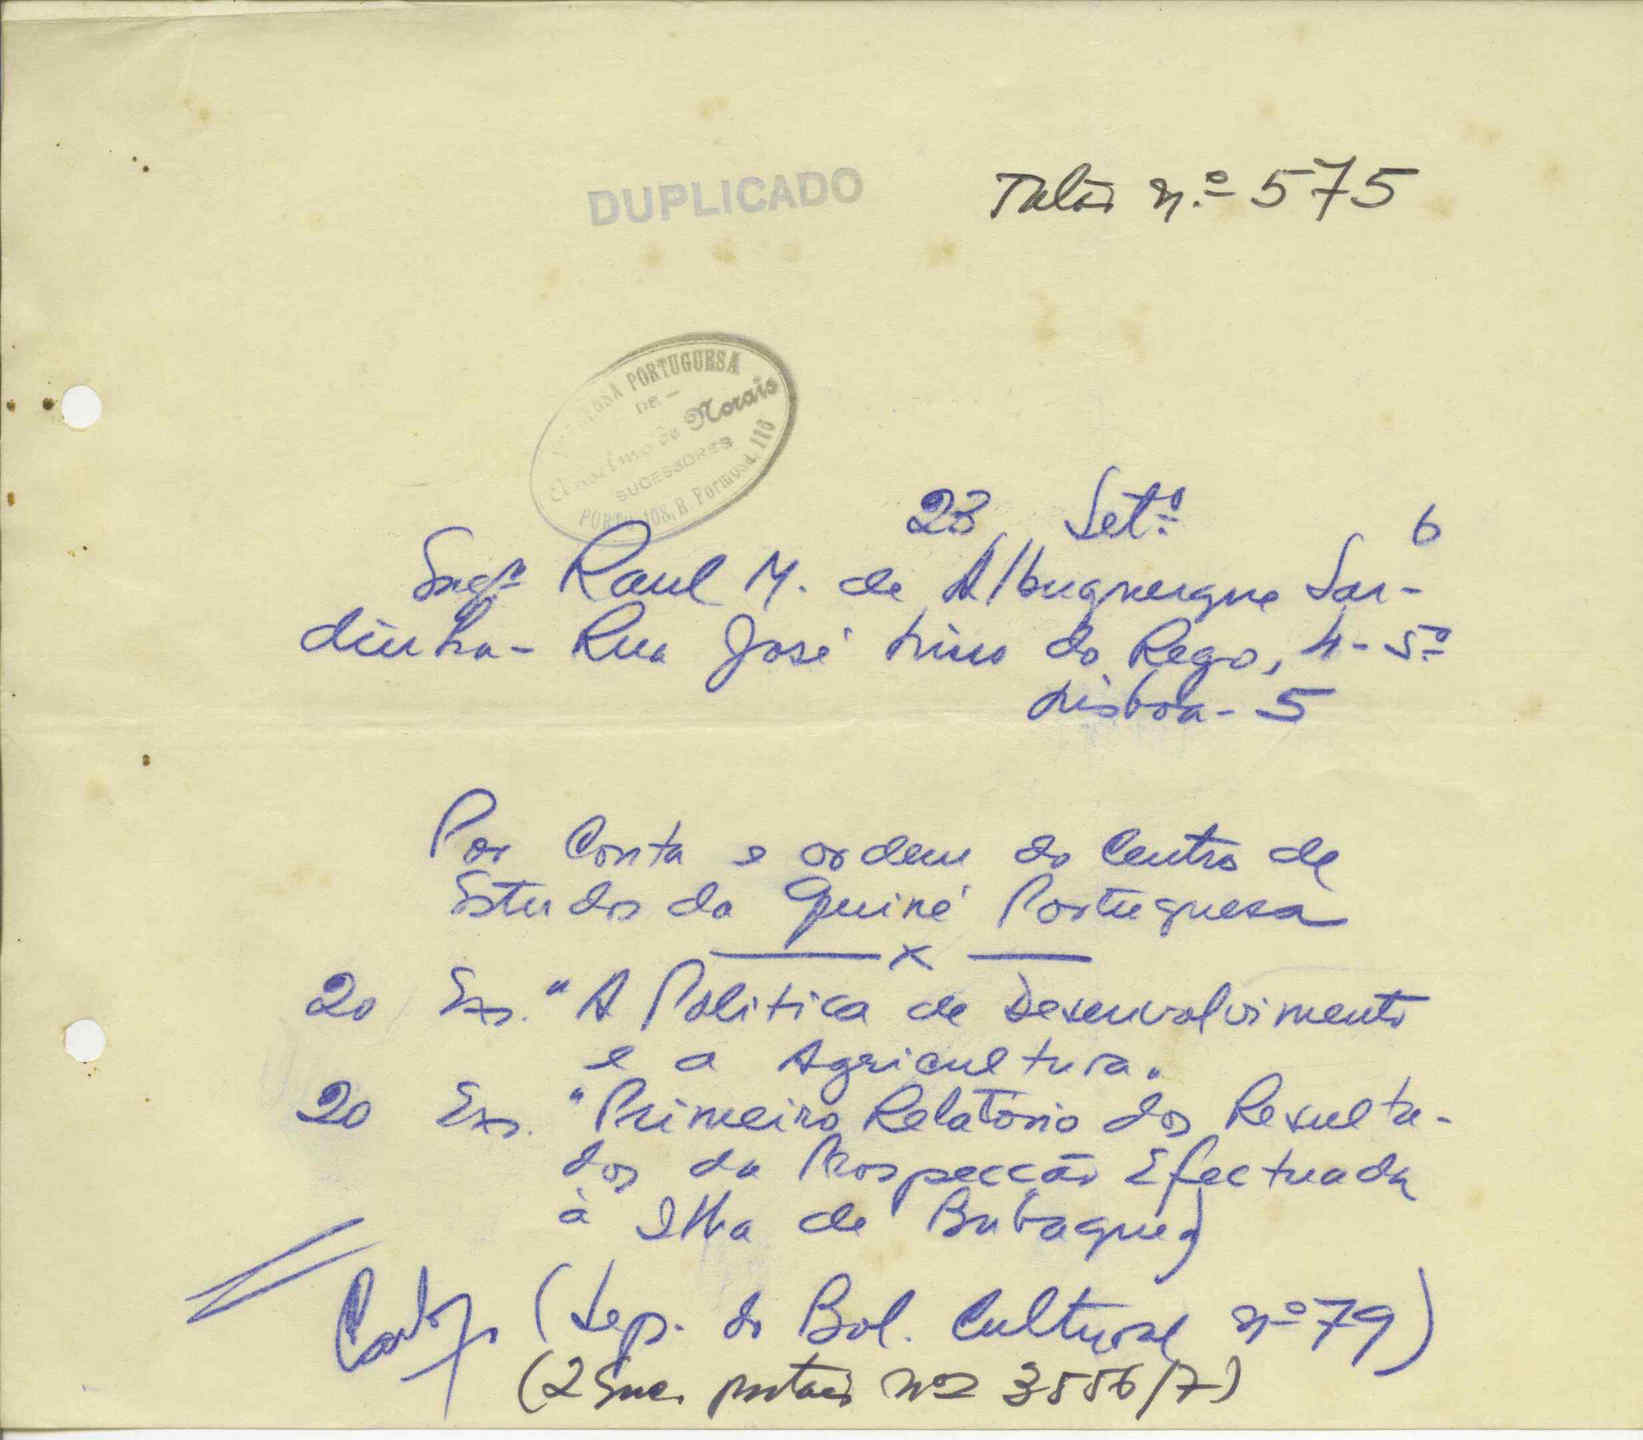 DUPLICADO
Talão n.º 575
PORTUGUESA
DE
Anselmo de Morais
SUCESSORES
PORTO 108, R. Formosa, 116
23 Set.º 6
Eng.º Raul M. de Albuquerque Sar-
dinha - Rua José Lins do Rego, 4 - 5.º
Lisboa - 5
Por Conta e ordem do Centro de
Estudos da Guiné Portuguesa
x
20 Exs. "A Politica de Desenvolvimento
e a Agricultura.
20 Exs. "Primeiro Relatório dos Resulta-
dos da Prospecção Efectuada
à Ilha de Bubaque)
(Sep. do Bol. Cultural nº 79)
(2 Enc. postais nos 3556/7)